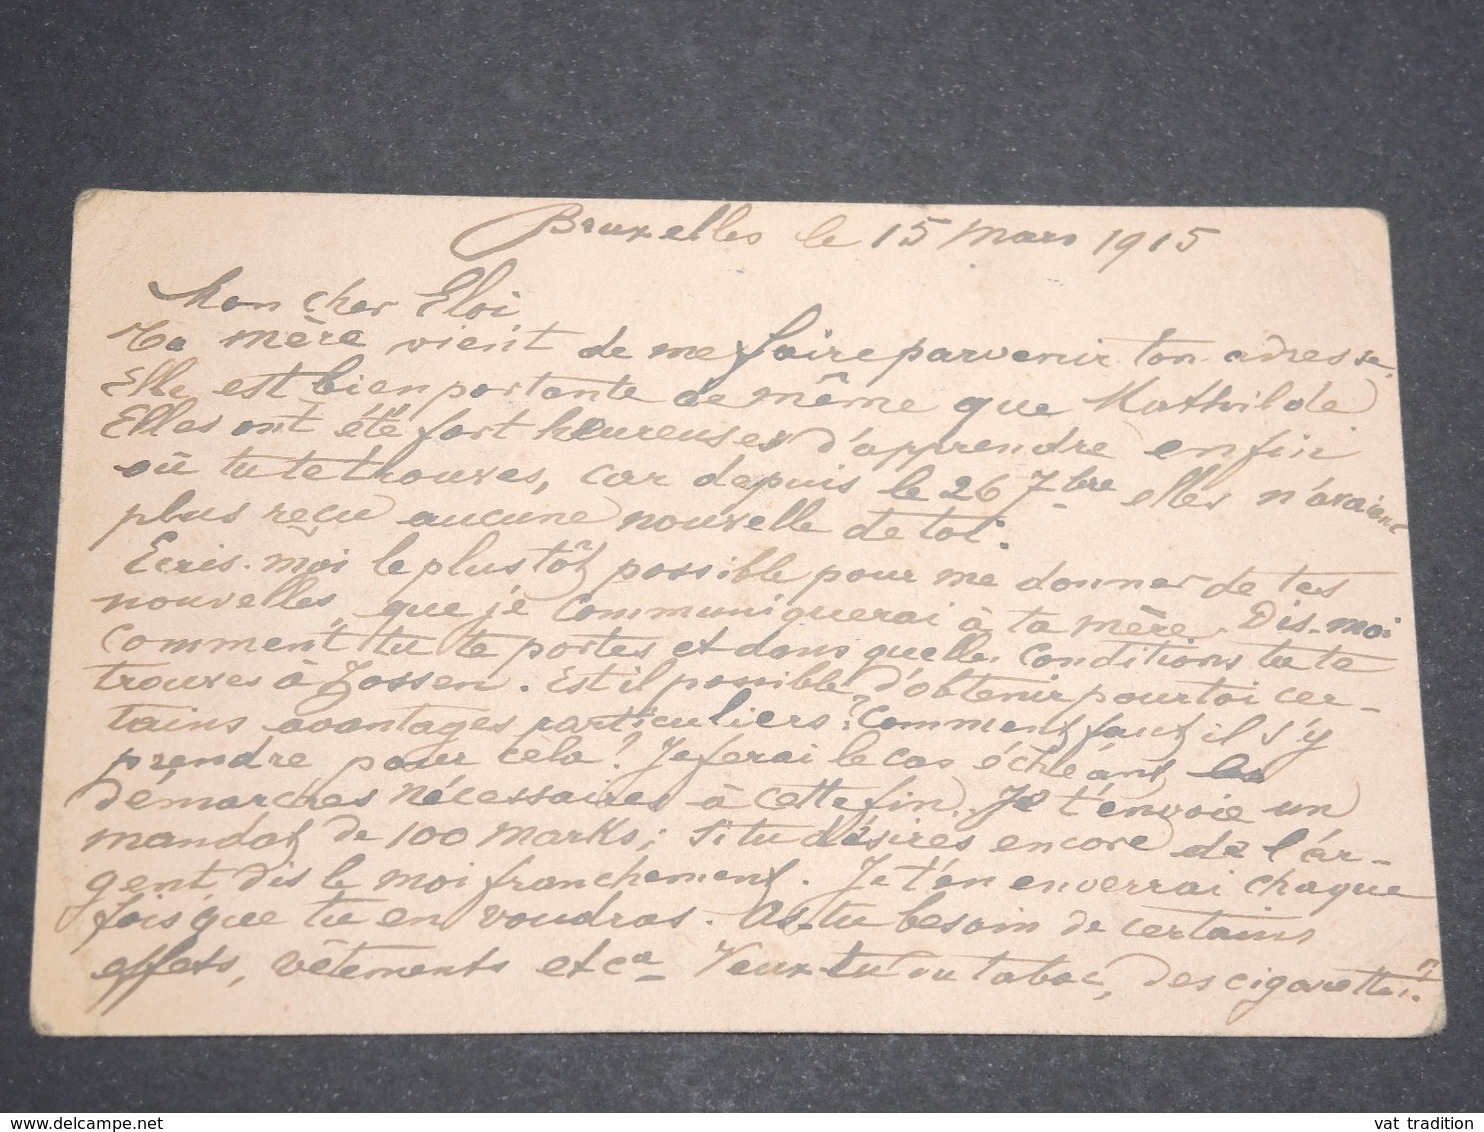 Bruxelles le 15 Mars 1915
Mon cher Eloi
Ta mère vient de me faire parvenir ton adresse.
Elle est bien portante de même que Mathilde
Elles ont été fort heureuses d'apprendre enfin
où tu te trouves, car depuis le 26 7bre elles n'avaient
plus reçu aucune nouvelle de toi.
Ecris-moi le plus tôt possible pour me donner de tes
nouvelles, que je communiquerai à ta mère. Dis-moi
comment tu te portes et dans quelles conditions tu te
trouves à Zossen. Est il possible d'obtenir pour toi cer-
tains avantages particuliers? Comment faut il s'y
prendre pour cela? Je ferai le cas échéant les
démarches nécessaires à cette fin. Je t'envoie un
mandat de 100 marks; si tu désires encore de l'ar-
gent, dis le moi franchement. Je t'en enverrai chaque
fois que tu en voudras. As-tu besoin de certains
effets, vêtements etca Veux-tu du tabac, des cigarettes?
vat tradition
www.delcampe.net